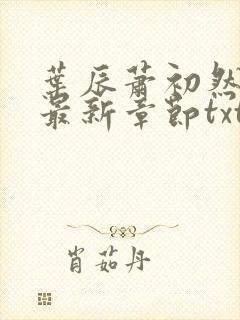 葉辰蕭初然
最新章節txt
肖茹丹